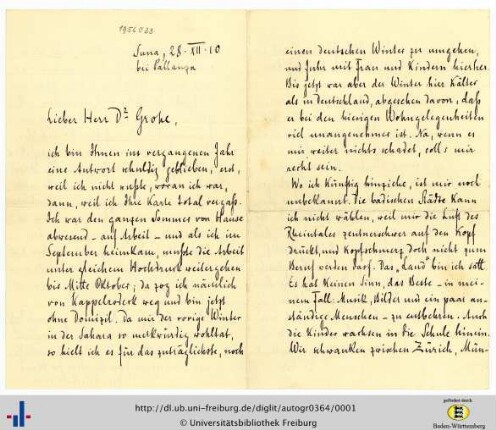 1956/033
Suna, 28-XII-10
bei Pallanza
Lieber Herr Dr Grohe,
ich bin Ihnen im vergangenen Jahr
eine Antwort schuldig geblieben, erst,
weil ich nicht wußte, woran ich war,
dann, weil ich Ihre Karte total vergaß.
Ich war den ganzen Sommer von Hause
abwesend – auf Arbeit – und als ich im
September heimkam, mußte die Arbeit
unter gleichem Hochdruck weitergehen
bis Mitte Oktober; da zog ich nämlich
von Kappelrodeck weg und bin jetzt
ohne Domizil. Da mir der vorige Winter
in der Sahara so merkwürdig wohltat,
so hielt ich es für das zuträglichste, noch
einen deutschen Winter zu umgehen,
und fuhr mit Frau und Kindern hierher.
Bis jetzt war aber der Winter hier kälter
als in Deutschland, abgesehen davon, daß
er bei den hiesigen Wohngelegenheiten
viel unangenehmes ist. Na, wenn es
mir weiter nichts schadet, soll's mir
recht sein.
Wo ich künftig hinziehe, ist mir noch
unbekannt. Die badischen Städte kann
ich nicht wählen, weil mir die Luft des
Rheintales zentnerschwer auf den Kopf
drückt, und Kopfschmerz doch nicht zum
Beruf werden darf. Das „Land" bin ich satt.
Es hat keinen Sinn, das Beste – in mei-
nem Fall: Musik, Bilder und ein paar an-
ständige Menschen – zu entbehren. Auch
die Kinder wachsen in die Schule hinein.
Wir schwanken zwischen Zürich, Mün-
http://dl.ub.uni-freiburg.de/diglit/autogr0364/0001
© Universitätsbibliothek Freiburg
gefördert durch
Baden-Württemberg